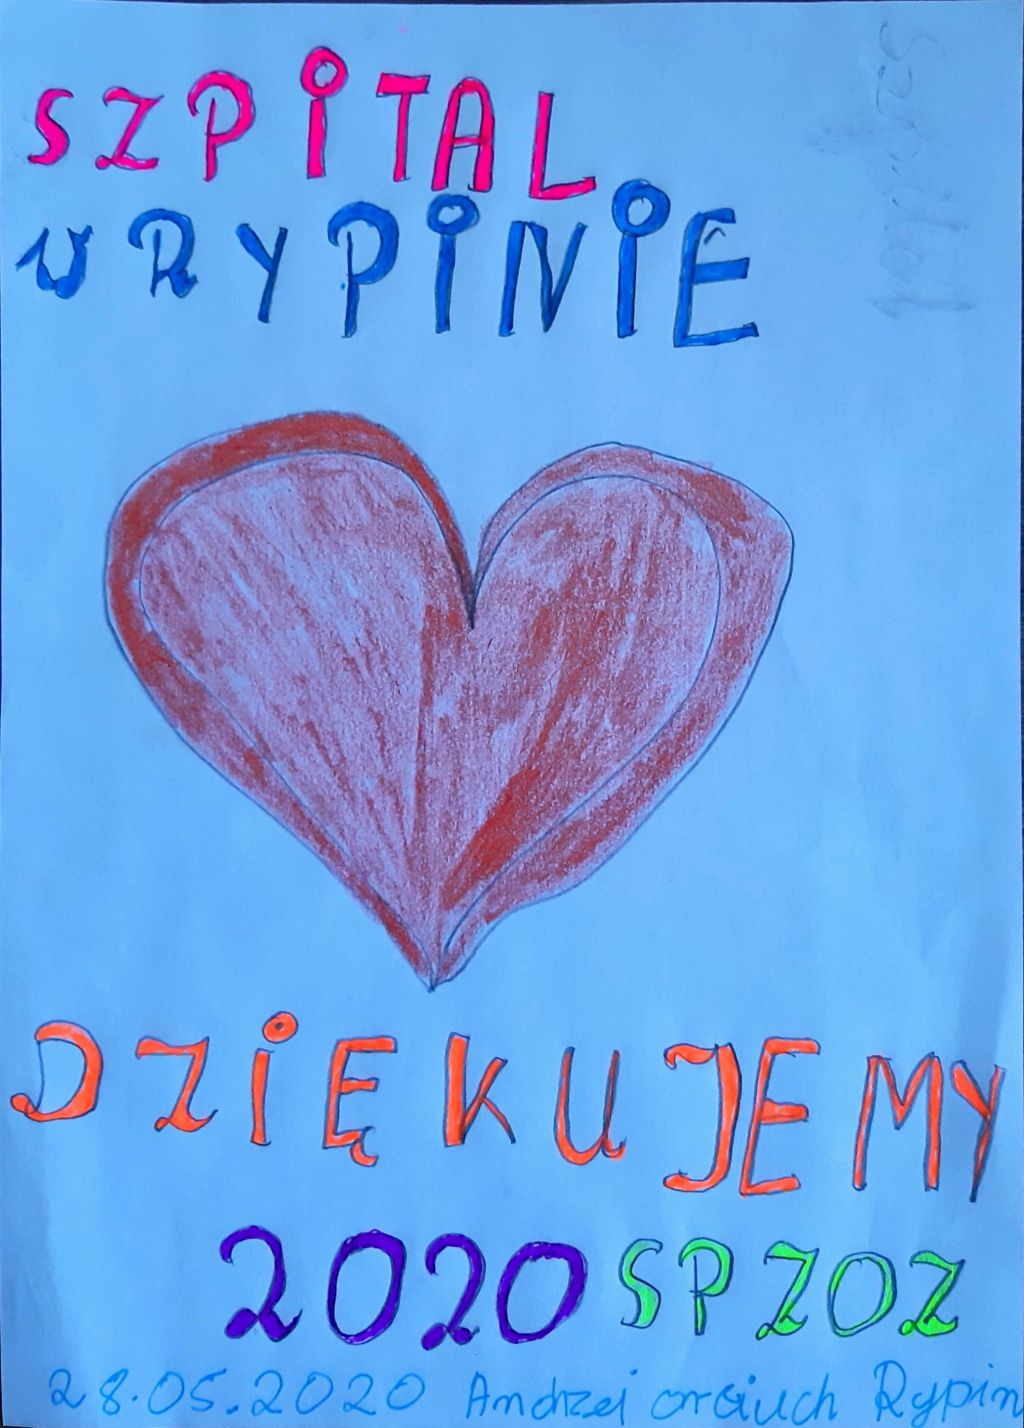 SZPITAL
W RYPINIE
DZIĘKUJEMY
2020 SPZOZ
28.05.2020 Andrzej Rypin